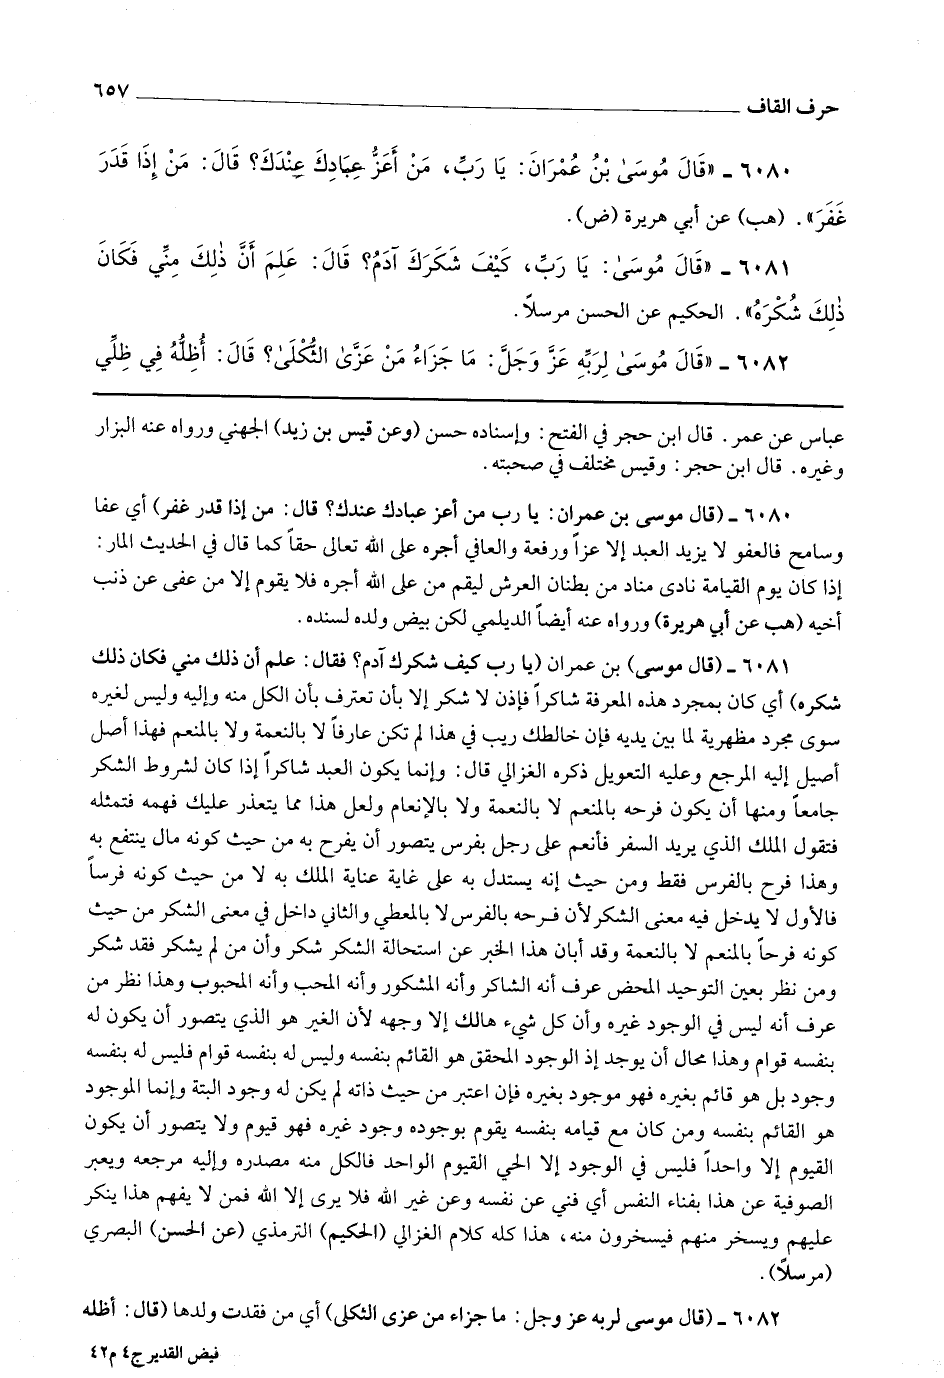 حرف القاف ٦٥٧
٦٠٨٠ ـ «قَالَ مُوسَىٰ بْنُ عُمْرَانَ: يَا رَبِّ، مَنْ أَعَزُّ عِبَادِكَ عِنْدَكَ؟ قَالَ: مَنْ إِذَا قَدَرَ
غَفَرَ». (هب) عن أبي هريرة (ض).
٦٠٨١ ـ «قَالَ مُوسَىٰ: يَا رَبِّ، كَيْفَ شَكَرَكَ آدَمُ؟ قَالَ: عَلِمَ أَنَّ ذٰلِكَ مِنِّي فَكَانَ
ذٰلِكَ شُكْرَهُ». الحكيم عن الحسن مرسلاً.
٦٠٨٢ ـ «قَالَ مُوسَىٰ لِرَبِّهِ عَزَّ وَجَلَّ: مَا جَزَاءُ مَنْ عَزَّىٰ الثُّكْلَىٰ؟ قَالَ: أُظِلُّهُ فِي ظِلِّي
عباس عن عمر. قال ابن حجر في الفتح: وإسناده حسن (وعن قيس بن زيد) الجهني ورواه عنه البزار
وغيره. قال ابن حجر: وقيس مختلف في صحبته.
٦٠٨٠ ـ (قال موسى بن عمران: يا رب من أعز عبادك عندك؟ قال: من إذا قدر غفر) أي عفا
وسامح فالعفو لا يزيد العبد إلا عزاً ورفعة والعافي أجره على الله تعالى حقاً كما قال في الحديث المار:
إذا كان يوم القيامة نادى مناد من بطنان العرش ليقم من على الله أجره فلا يقوم إلا من عفى عن ذنب
أخيه (هب عن أبي هريرة) ورواه عنه أيضاً الديلمي لكن بيض ولده لسنده.
٦٠٨١ ـ (قال موسى) بن عمران (يا رب كيف شكرك آدم؟ فقال: علم أن ذلك مني فكان ذلك
شكره) أي كان بمجرد هذه المعرفة شاكراً فإذن لا شكر إلا بأن تعترف بأن الكل منه وإليه وليس لغيره
سوى مجرد مظهرية لما بين يديه فإن خالطك ريب في هذا لم تكن عارفاً لا بالنعمة ولا بالمنعم فهذا أصل
أصيل إليه المرجع وعليه التعويل ذكره الغزالي قال: وإنما يكون العبد شاكراً إذا كان لشروط الشكر
جامعاً ومنها أن يكون فرحه بالمنعم لا بالنعمة ولا بالإنعام ولعل هذا مما يتعذر عليك فهمه فتمثله
فتقول الملك الذي يريد السفر فأنعم على رجل بفرس يتصور أن يفرح به من حيث كونه مال ينتفع به
وهذا فرح بالفرس فقط ومن حيث إنه يستدل به على غاية عناية الملك به لا من حيث كونه فرساً
فالأول لا يدخل فيه معنى الشكر لأن فرحه بالفرس لا بالمعطي والثاني داخل في معنى الشكر من حيث
كونه فرحاً بالمنعم لا بالنعمة وقد أبان هذا الخبر عن استحالة الشكر شكر وأن من لم يشكر فقد شكر
ومن نظر بعين التوحيد المحض عرف أنه الشاكر وأنه المشكور وأنه المحب وأنه المحبوب وهذا نظر من
عرف أنه ليس في الوجود غيره وأن كل شيء هالك إلا وجهه لأن الغير هو الذي يتصور أن يكون له
بنفسه قوام وهذا محال أن يوجد إذ الوجود المحقق هو القائم بنفسه وليس له بنفسه قوام فليس له بنفسه
وجود بل هو قائم بغيره فهو موجود بغيره فإن اعتبر من حيث ذاته لم يكن له وجود البتة وإنما الموجود
هو القائم بنفسه ومن كان مع قيامه بنفسه يقوم بوجوده وجود غيره فهو قيوم ولا يتصور أن يكون
القيوم إلا واحداً فليس في الوجود إلا الحي القيوم الواحد فالكل منه مصدره وإليه مرجعه ويعبر
الصوفية عن هذا بفناء النفس أي فني عن نفسه وعن غير الله فلا يرى إلا الله فمن لا يفهم هذا ينكر
عليهم ويسخر منهم فيسخرون منه، هذا كله كلام الغزالي (الحكيم) الترمذي (عن الحسن) البصري
(مرسلاً).
٦٠٨٢ ـ (قال موسى لربه عز وجل: ما جزاء من عزى الثكلى) أي من فقدت ولدها (قال: أظله
فيض القدير ج٤ م٤٢